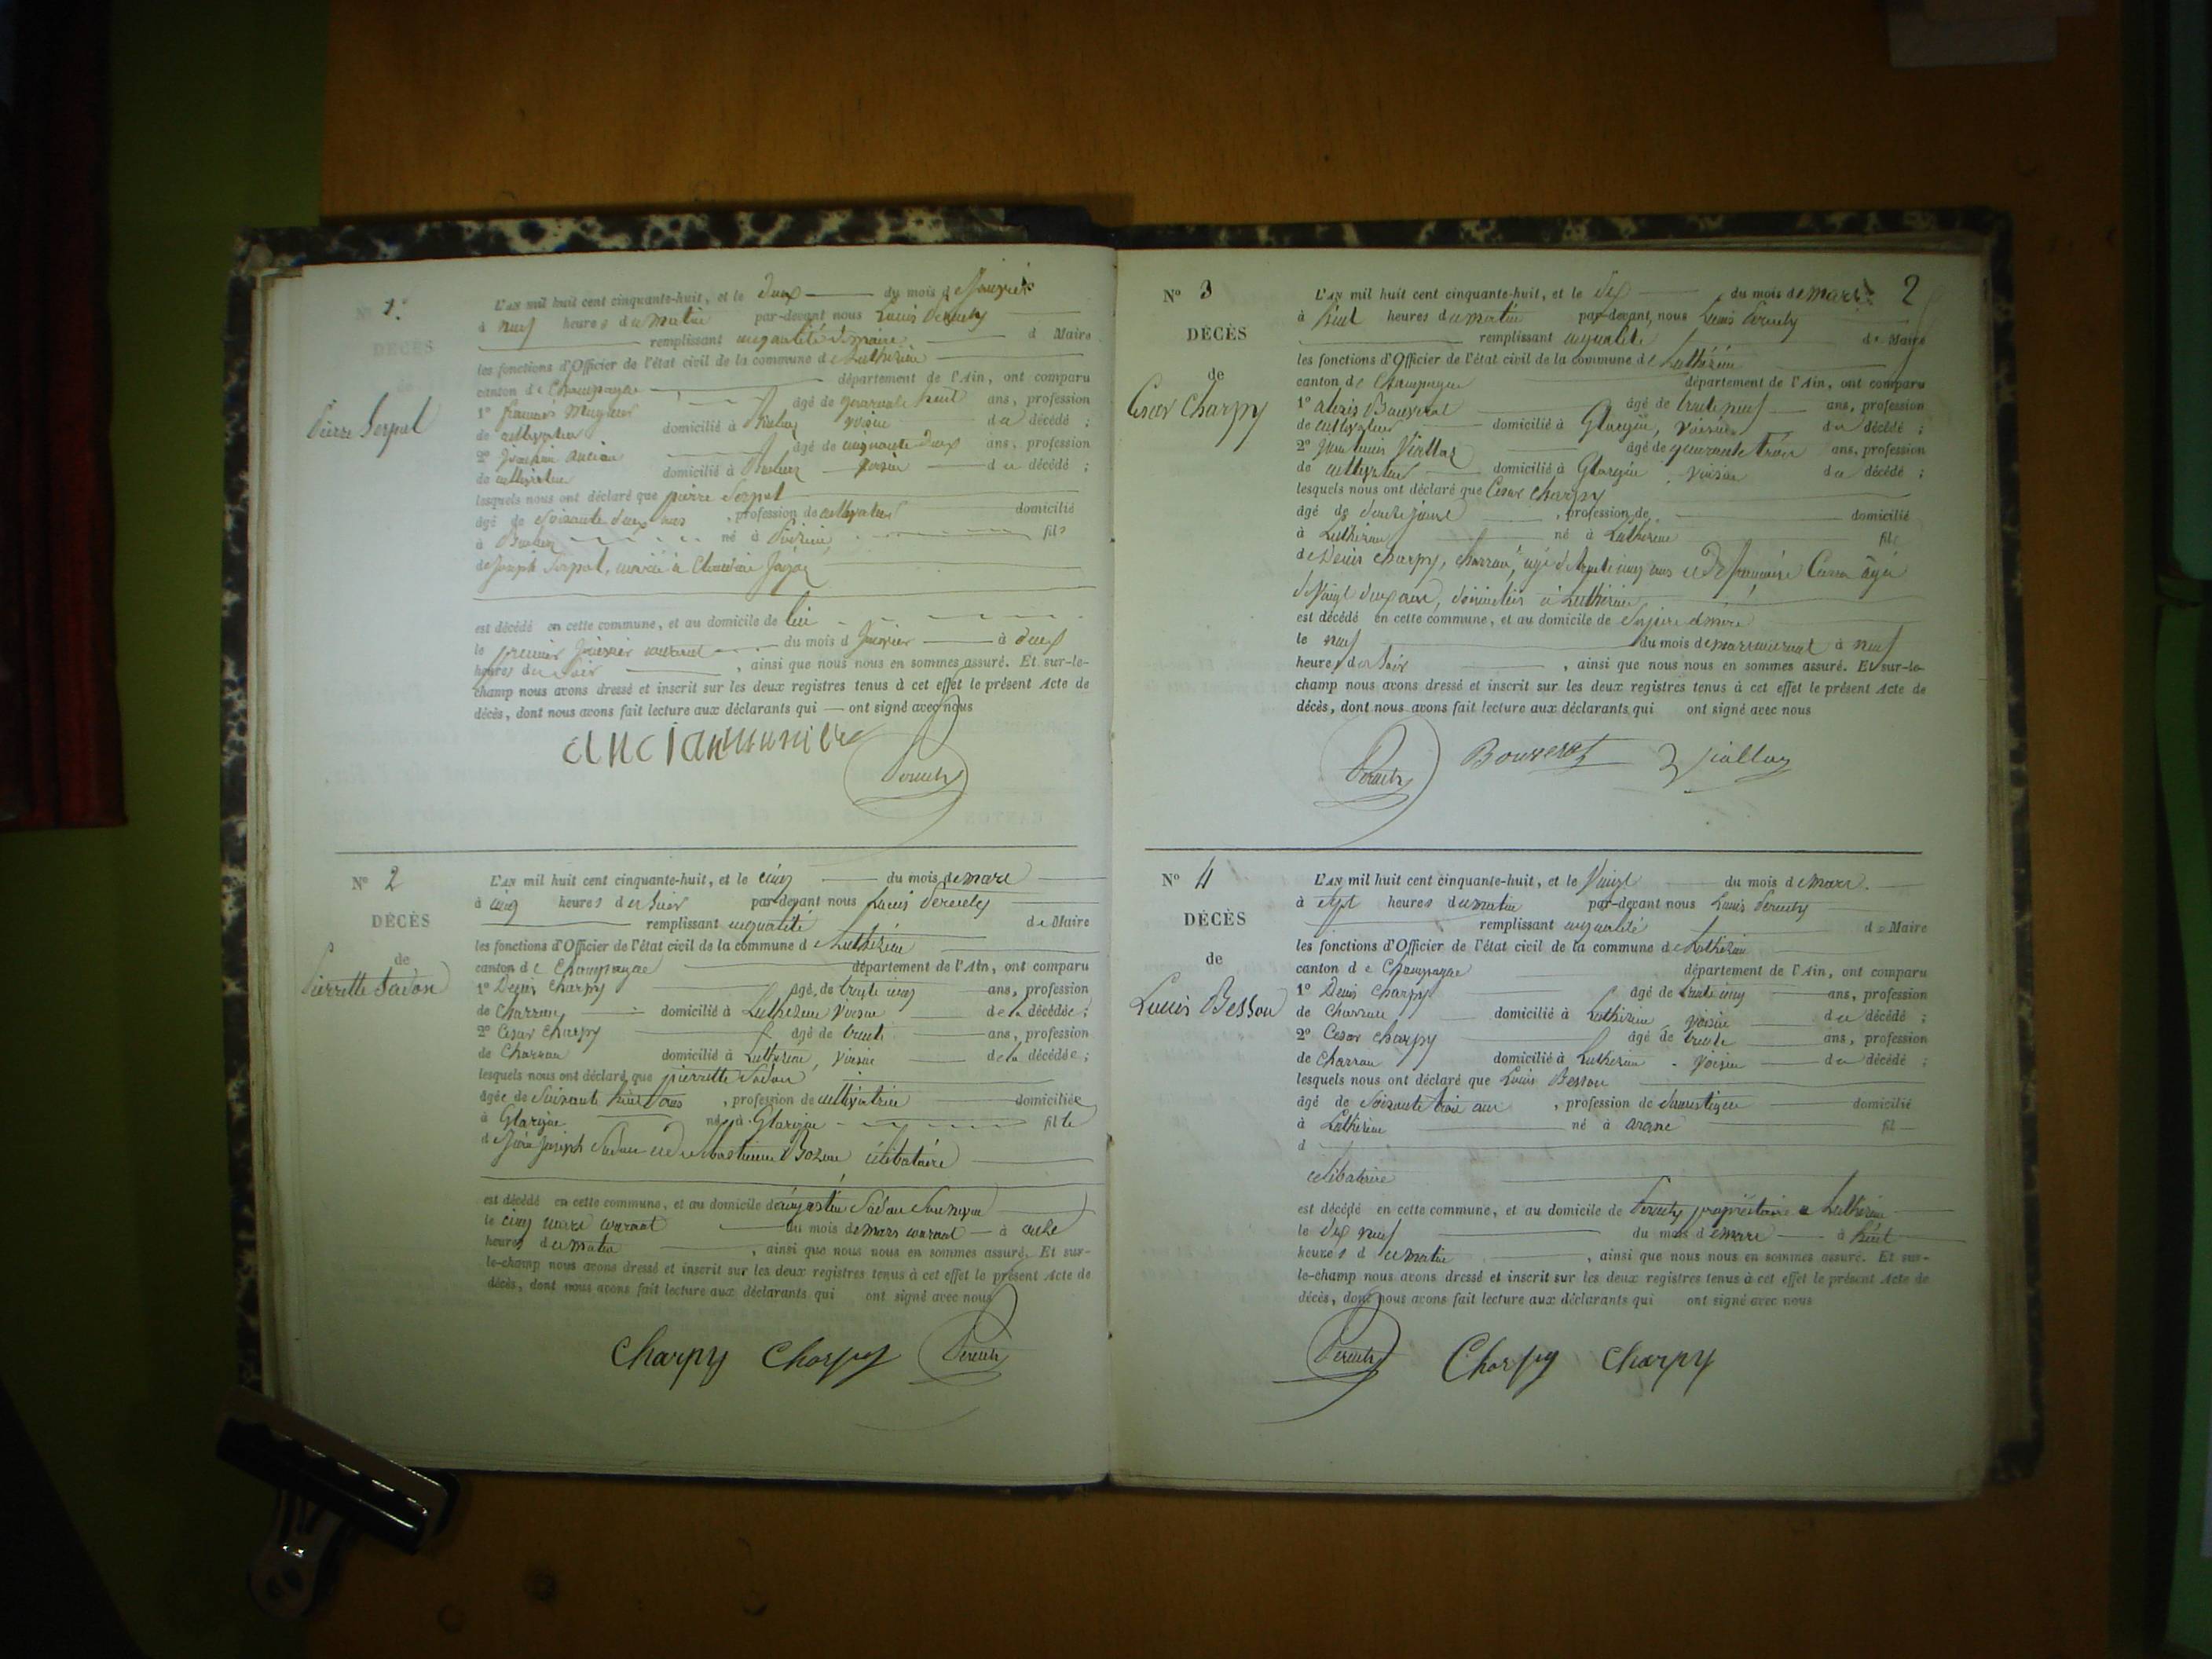 N° 1.
DÉCÈS
de
Pierre Serpol
L'AN mil huit cent cinquante-huit, et le deux du mois de Janvier
à neuf heures du matin par-devant nous Louis
remplissant en qualité de maire d Maire
les fonctions d'Officier de l'état civil de la commune de Luthézieu
canton de Champagne département de l'Ain, ont comparu
1° François âgé de quarante huit ans, profession
de cultivateur domicilié à voisin du décédé ;
2° Joachim Ancian âgé de cinquante deux ans, profession
de cultivateur domicilié à voisin du décédé ;
lesquels nous ont déclaré que pierre Serpol
âgé de soixante deux ans, profession de cultivateur domicilié
à né à fils
de Joseph Serpol, marié à Claudine
est décédé en cette commune, et au domicile de lui
le premier Janvier courant du mois d Janvier à deux
heures du soir, ainsi que nous nous en sommes assuré. Et sur-le-
champ nous avons dressé et inscrit sur les deux registres tenus à cet effet le présent Acte de
décès, dont nous avons fait lecture aux déclarants qui — ont signé avec nous
N° 2
DÉCÈS
de
Pierrette Sadon
L'AN mil huit cent cinquante-huit, et le cinq du mois de mars
à cinq heures du soir par-devant nous Louis
remplissant en qualité de Maire
les fonctions d'Officier de l'état civil de la commune de Luthézieu
canton de Champagne département de l'Ain, ont comparu
1° Denis Charpy âgé de trente cinq ans, profession
de Charron domicilié à Luthézieu voisin de la décédée ;
2° Cesar Charpy âgé de trente ans, profession
de Charron domicilié à Luthézieu, voisin de la décédée ;
lesquels nous ont déclaré que pierrette Sadon
âgée de soixante huit ans, profession de cultivatrice domiciliée
à Glargin né à Glargin fille
de Joseph Sadon et de célibataire
est décédé en cette commune, et au domicile de Sadon
le cinq mars courant du mois de mars courant à
heures du matin, ainsi que nous nous en sommes assuré. Et sur-
le-champ nous avons dressé et inscrit sur les deux registres tenus à cet effet le présent Acte de
décès, dont nous avons fait lecture aux déclarants qui ont signé avec nous
Charpy Charpy
2
N° 3
DÉCÈS
de
Cesar Charpy
L'AN mil huit cent cinquante-huit, et le dix du mois de mars
à huit heures du matin par-devant nous Louis
remplissant en qualité de Maire
les fonctions d'Officier de l'état civil de la commune de Luthézieu
canton de Champagne département de l'Ain, ont comparu
1° Alexis Bouverat âgé de trente neuf ans, profession
de cultivateur domicilié à Glargin, voisin du décédé ;
2° Jean Louis Viallaz âgé de quarante trois ans, profession
de cultivateur domicilié à Glargin, voisin du décédé ;
lesquels nous ont déclaré que Cesar Charpy
âgé de jours, profession de domicilié
à Luthézieu né à Luthézieu fils
de Denis Charpy, charron, âgé de trente cinq ans et de françoise âgée
de vingt deux ans, domiciliés à Luthézieu
est décédé en cette commune, et au domicile de ses père et mère
le neuf du mois de mars courant à neuf
heures du soir, ainsi que nous nous en sommes assuré. Et sur-le-
champ nous avons dressé et inscrit sur les deux registres tenus à cet effet le présent Acte de
décès, dont nous avons fait lecture aux déclarants qui ont signé avec nous
Bouverat Viallaz
N° 4
DÉCÈS
de
Louis Besson
L'AN mil huit cent cinquante-huit, et le vingt du mois de mars.
à sept heures du matin par-devant nous Louis
remplissant en qualité de Maire
les fonctions d'Officier de l'état civil de la commune de Luthézieu
canton de Champagne département de l'Ain, ont comparu
1° Denis Charpy âgé de trente cinq ans, profession
de Charron domicilié à Luthézieu voisin du décédé ;
2° Cesar Charpy âgé de trente ans, profession
de Charron domicilié à Luthézieu voisin du décédé ;
lesquels nous ont déclaré que Louis Besson
âgé de soixante trois ans, profession de domestique domicilié
à Luthézieu né à fil
d
célibataire
est décédé en cette commune, et au domicile de propriétaire à Luthézieu
le dix neuf du mois de mars à huit
heures du matin, ainsi que nous nous en sommes assuré. Et sur-
le-champ nous avons dressé et inscrit sur les deux registres tenus à cet effet le présent Acte de
décès, dont nous avons fait lecture aux déclarants qui ont signé avec nous
Charpy Charpy